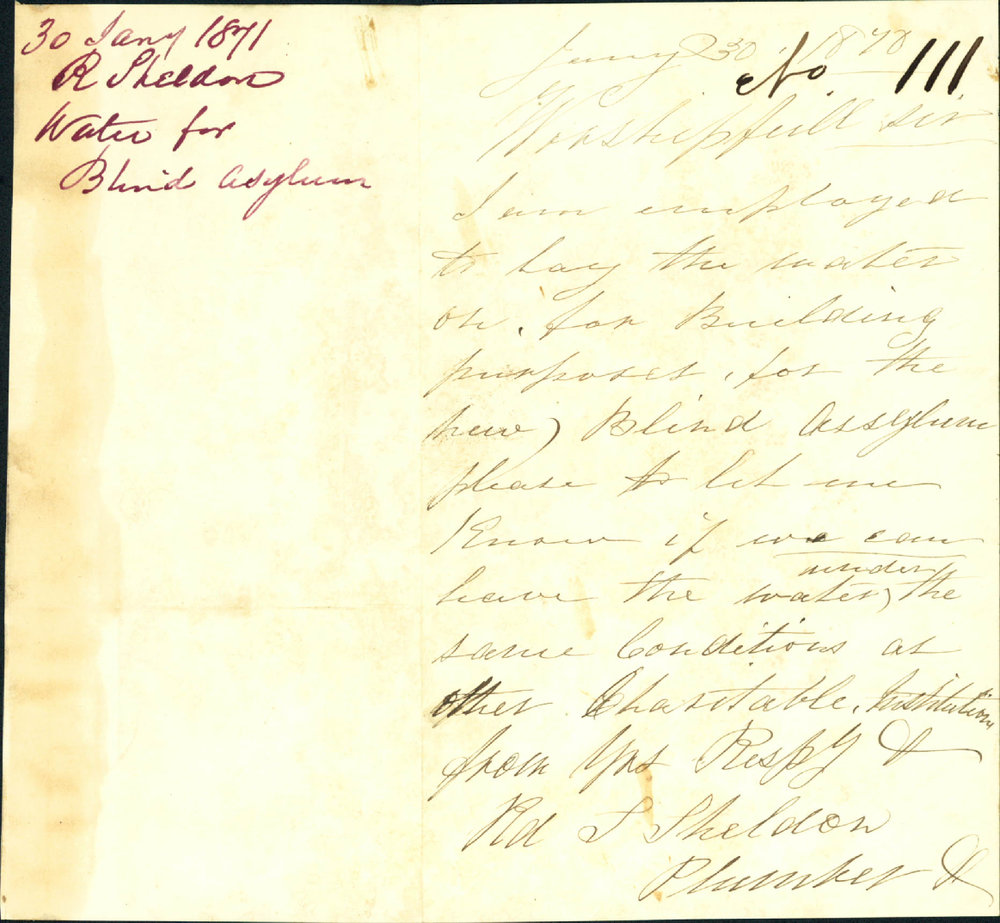 30 Jany 1871
R Sheldon
Water for
Blind Asylum
Jany 30 1870
No. 111
Worshipfull Sir
I am employed
to lay the water
on, for Building
purposes, for the
new Blind Assylum
please to let me
Know if we can
have the water, under the
same Conditions as
other Charitable Institutions
from Yrs Respy &
Rd S Sheldon
Plumber &